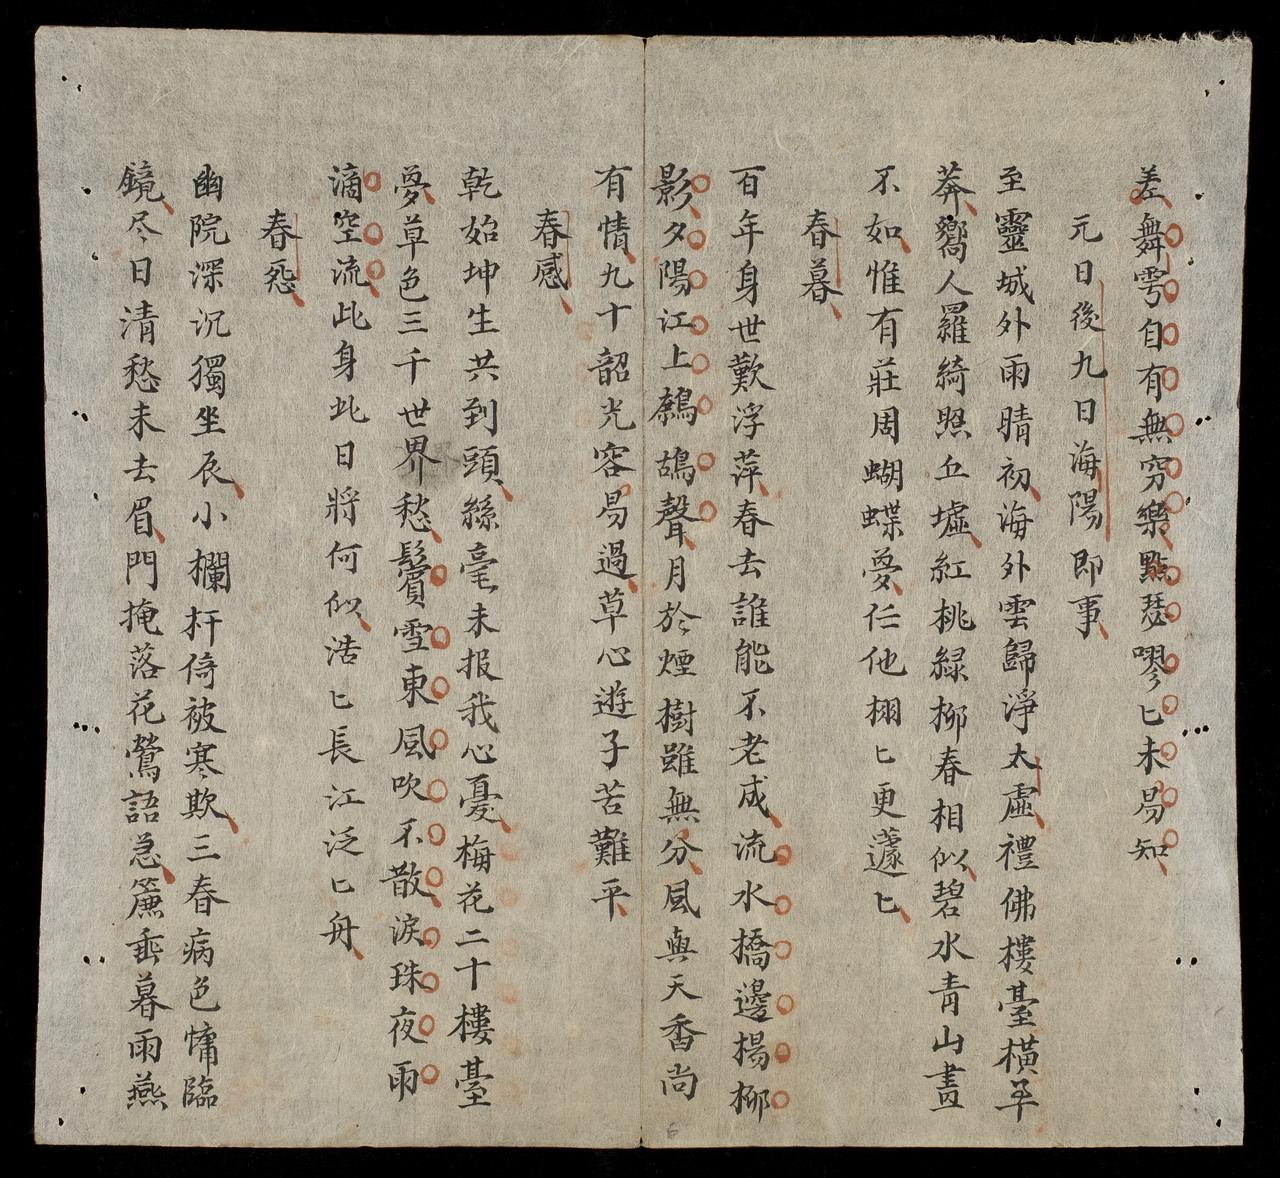 差舞雩自有無窮樂點瑟嘐匕未易知
元日後九日海陽即事
至靈城外雨晴初海外雲歸淨太虛禮佛樓臺橫平
莽嚮人羅綺照丘墟紅桃綠柳春相似碧水青山畫
不如惟有莊周蝴蝶夢任他栩匕更蘧匕
春暮
百年身世歎浮萍春去誰能不老成流水橋邊楊柳
影夕陽江上鷓鴣聲月於煙樹雖無分風與天香尚
有情九十韶光容易過草心遊子苦難平
春感
乾始坤生共到頭絲毫未报我心憂梅花二十樓臺
夢草色三千世界愁鬢雪東風吹不散淚珠夜雨
滴空流此身此日將何似浩匕長江泛匕舟
春怨
幽院深沉獨坐辰小欄杆倚被寒欺三春病色慵臨
鏡尽日清愁未去眉門掩落花鶯語急簾垂暮雨燕